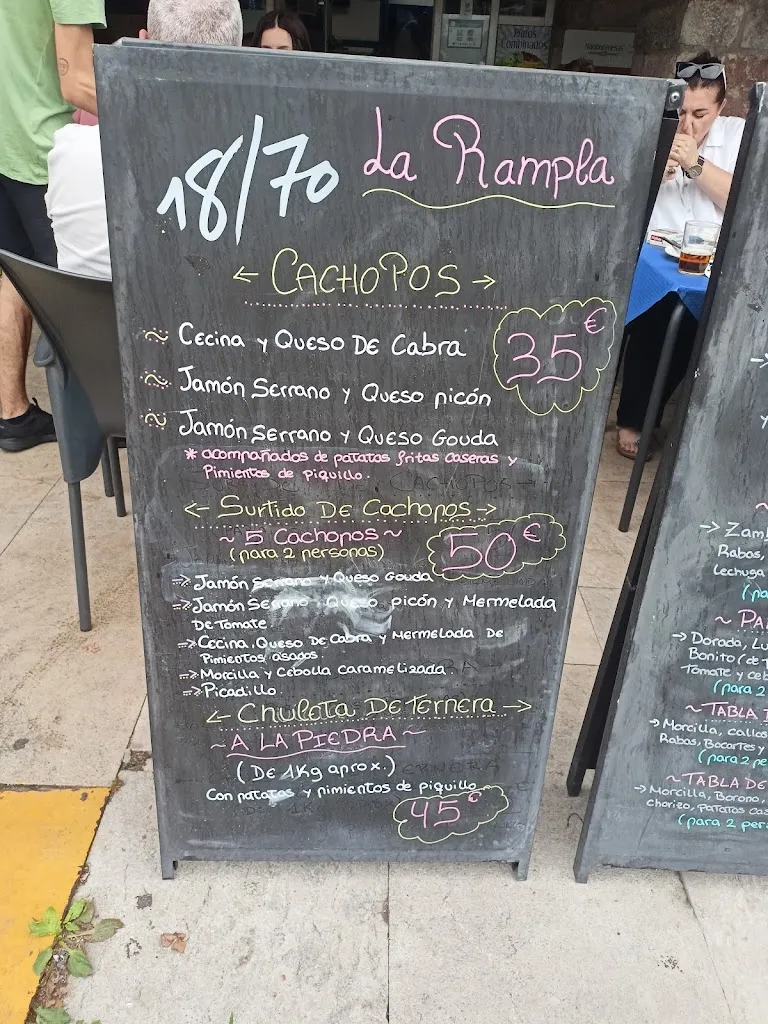 Platos
Combinados
18/70 La Rampla
← CACHOPOS →
~ Cecina y Queso De Cabra
~ Jamón Serrano y Queso picón
~ Jamón Serrano y Queso Gouda
35€
* acompañados de patatas fritas caseras y
Pimientos de piquillo.
← Surtido De Cachopos →
~ 5 Cachopos ~
(para 2 personas)
50€
⇒ Jamón Serrano y Queso Gouda
⇒ Jamón Serrano y Queso picón y Mermelada
De Tomate
⇒ Cecina. Queso De Cabra y Mermelada De
Pimientos asados.
⇒ Morcilla y Cebolla caramelizada.
⇒ Picadillo.
← Chuleta De Ternera →
~ A LA PIEDRA ~
(De 1Kg aprox.)
Con patatas y pimientos de piquillo
45€
→ Zam
Rabas,
Lechuga
(pa
~ PA
→ Dorada, Lu
Bonito (de T
Tomate y ceb
(para 2
~ TABLA D
→ Morcilla, callos
Rabas, Bocartes y
(para 2 pe
~ TABLA DE
→ Morcilla, Borono,
chorizo, patatas cas
(para 2 per